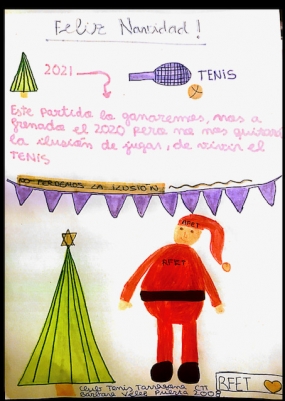 Feliz Navidad!
2021
TENIS
Este partido lo ganaremos, nos a
frenado el 2020 pero no nos quitara
la ilusión de jugar, de vivir el
TENIS
NO PERDEMOS LA ILUSIÓN
RFET
RFET
RFET
Club Tenis Tarragona CTT
Bárbara Vélez Puerta 2008